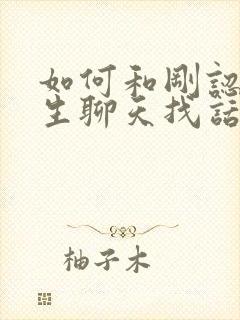 如何和剛認
生聊天找話
柚子木